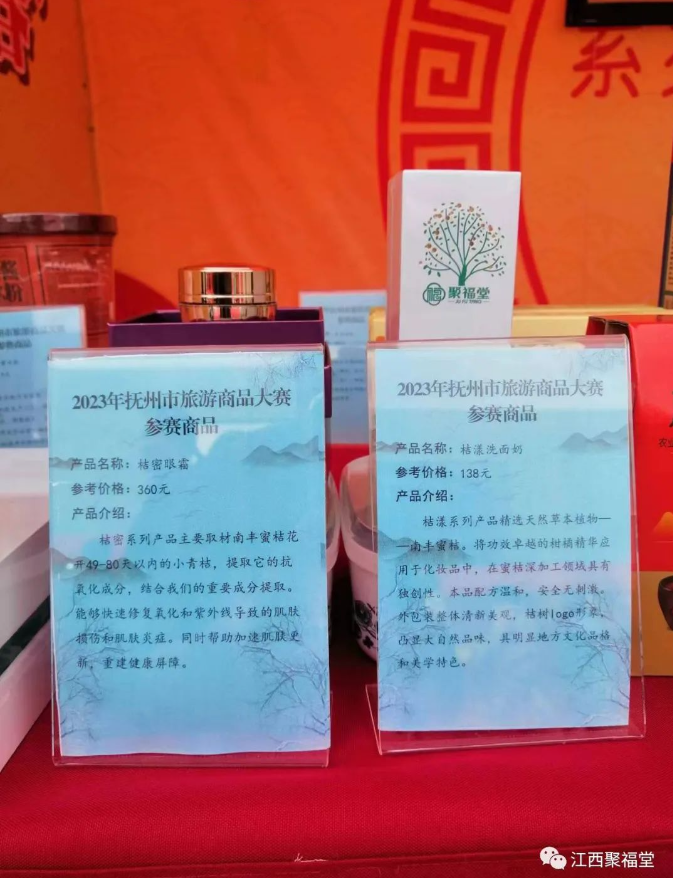 聚福堂
2023年抚州市旅游商品大赛
参赛商品
产品名称：桔密眼霜
参考价格：360元
产品介绍：
桔密系列产品主要取材南丰蜜桔花
开49-80天以内的小青桔，提取它的抗
氧化成分，结合我们的重要成分提取。
能够快速修复氧化和紫外线导致的肌肤
损伤和肌肤炎症。同时帮助加速肌肤更
新，重建健康屏障。
2023年抚州市旅游商品大赛
参赛商品
产品名称：桔漾洗面奶
参考价格：138元
产品介绍：
桔漾系列产品精选天然草本植物—
—南丰蜜桔。将功效卓越的柑橘精华应
用于化妆品中，在蜜桔深加工领域具有
独创性。本品配方温和，安全无刺激。
外包装整体清新美观，桔树logo形象，
凸显大自然品味，具明显地方文化品格
和美学特色。
江西聚福堂